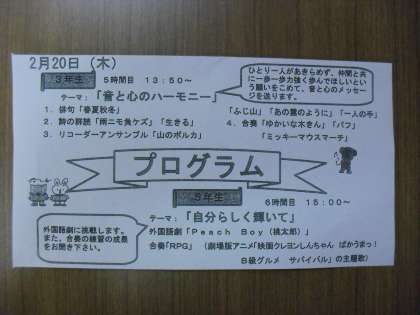 2月20日（木）
3年生　5時間目　13：50～
テーマ：「音と心のハーモニー」
ひとり一人があきらめず、仲間と共
に一歩一歩力強く歩んでほしいとい
う願いをこめて、音と心のメッセー
ジを送ります。
1. 俳句「春夏秋冬」
2. 詩の群読「雨ニモ負ケズ」「生きる」
3. リコーダーアンサンブル「山のポルカ」
「ふじ山」「あの雲のように」「一人の手」
4. 合奏「ゆかいな木きん」「パフ」
「ミッキーマウスマーチ」
プログラム
5年生
6時間目　15：00～
テーマ：「自分らしく輝いて」
外国語劇「Peach Boy（桃太郎）」
合奏「RPG」（劇場版アニメ「映画クレヨンしんちゃん　ばかうまっ！
B級グルメ　サバイバル」の主題歌）
外国語劇に挑戦します。
また、合奏の練習の成果
をお聞き下さい。